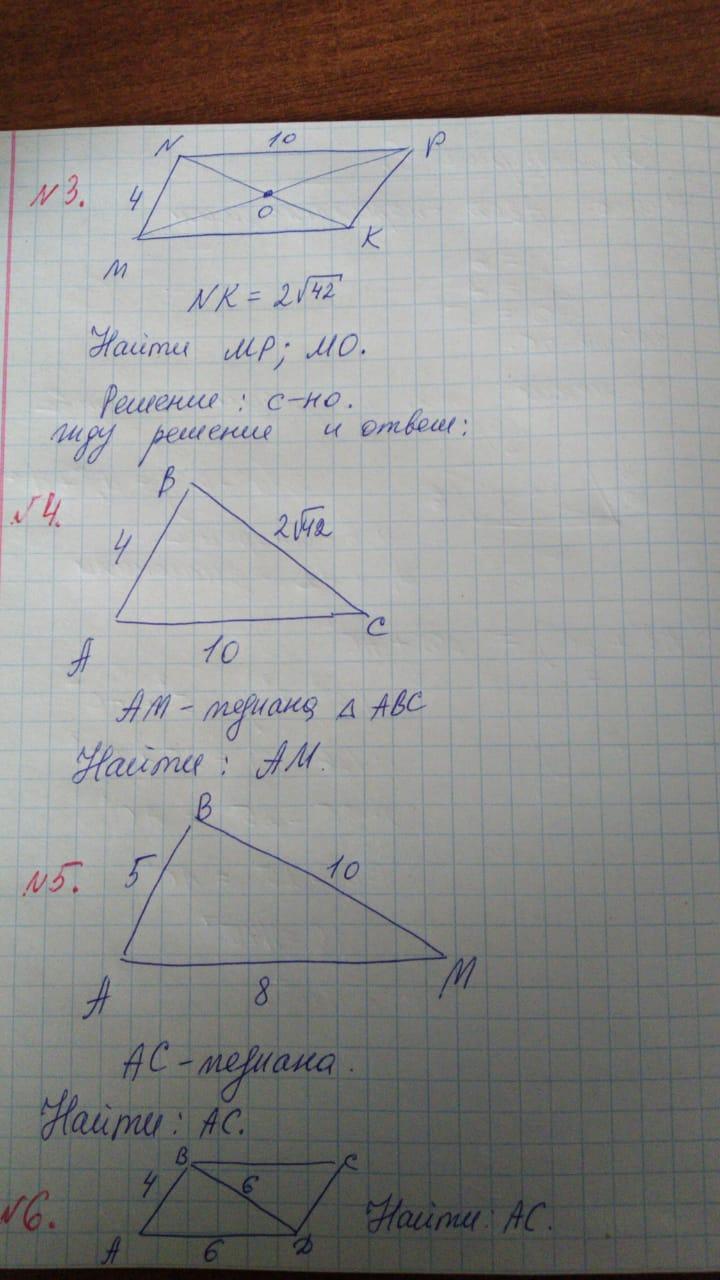 N 10 P
№3. 4 O
M K
NK = 2√42
Найти MP; MO.
Решение: с-но.
жду решение и ответ:
№4. B
4 2√42
A 10 C
AM - медиана △ ABC
Найти: AM.
B
№5. 5 10
A 8 M
AC - медиана.
Найти: AC.
B C
4 6
№6. Найти: AC.
A 6 D